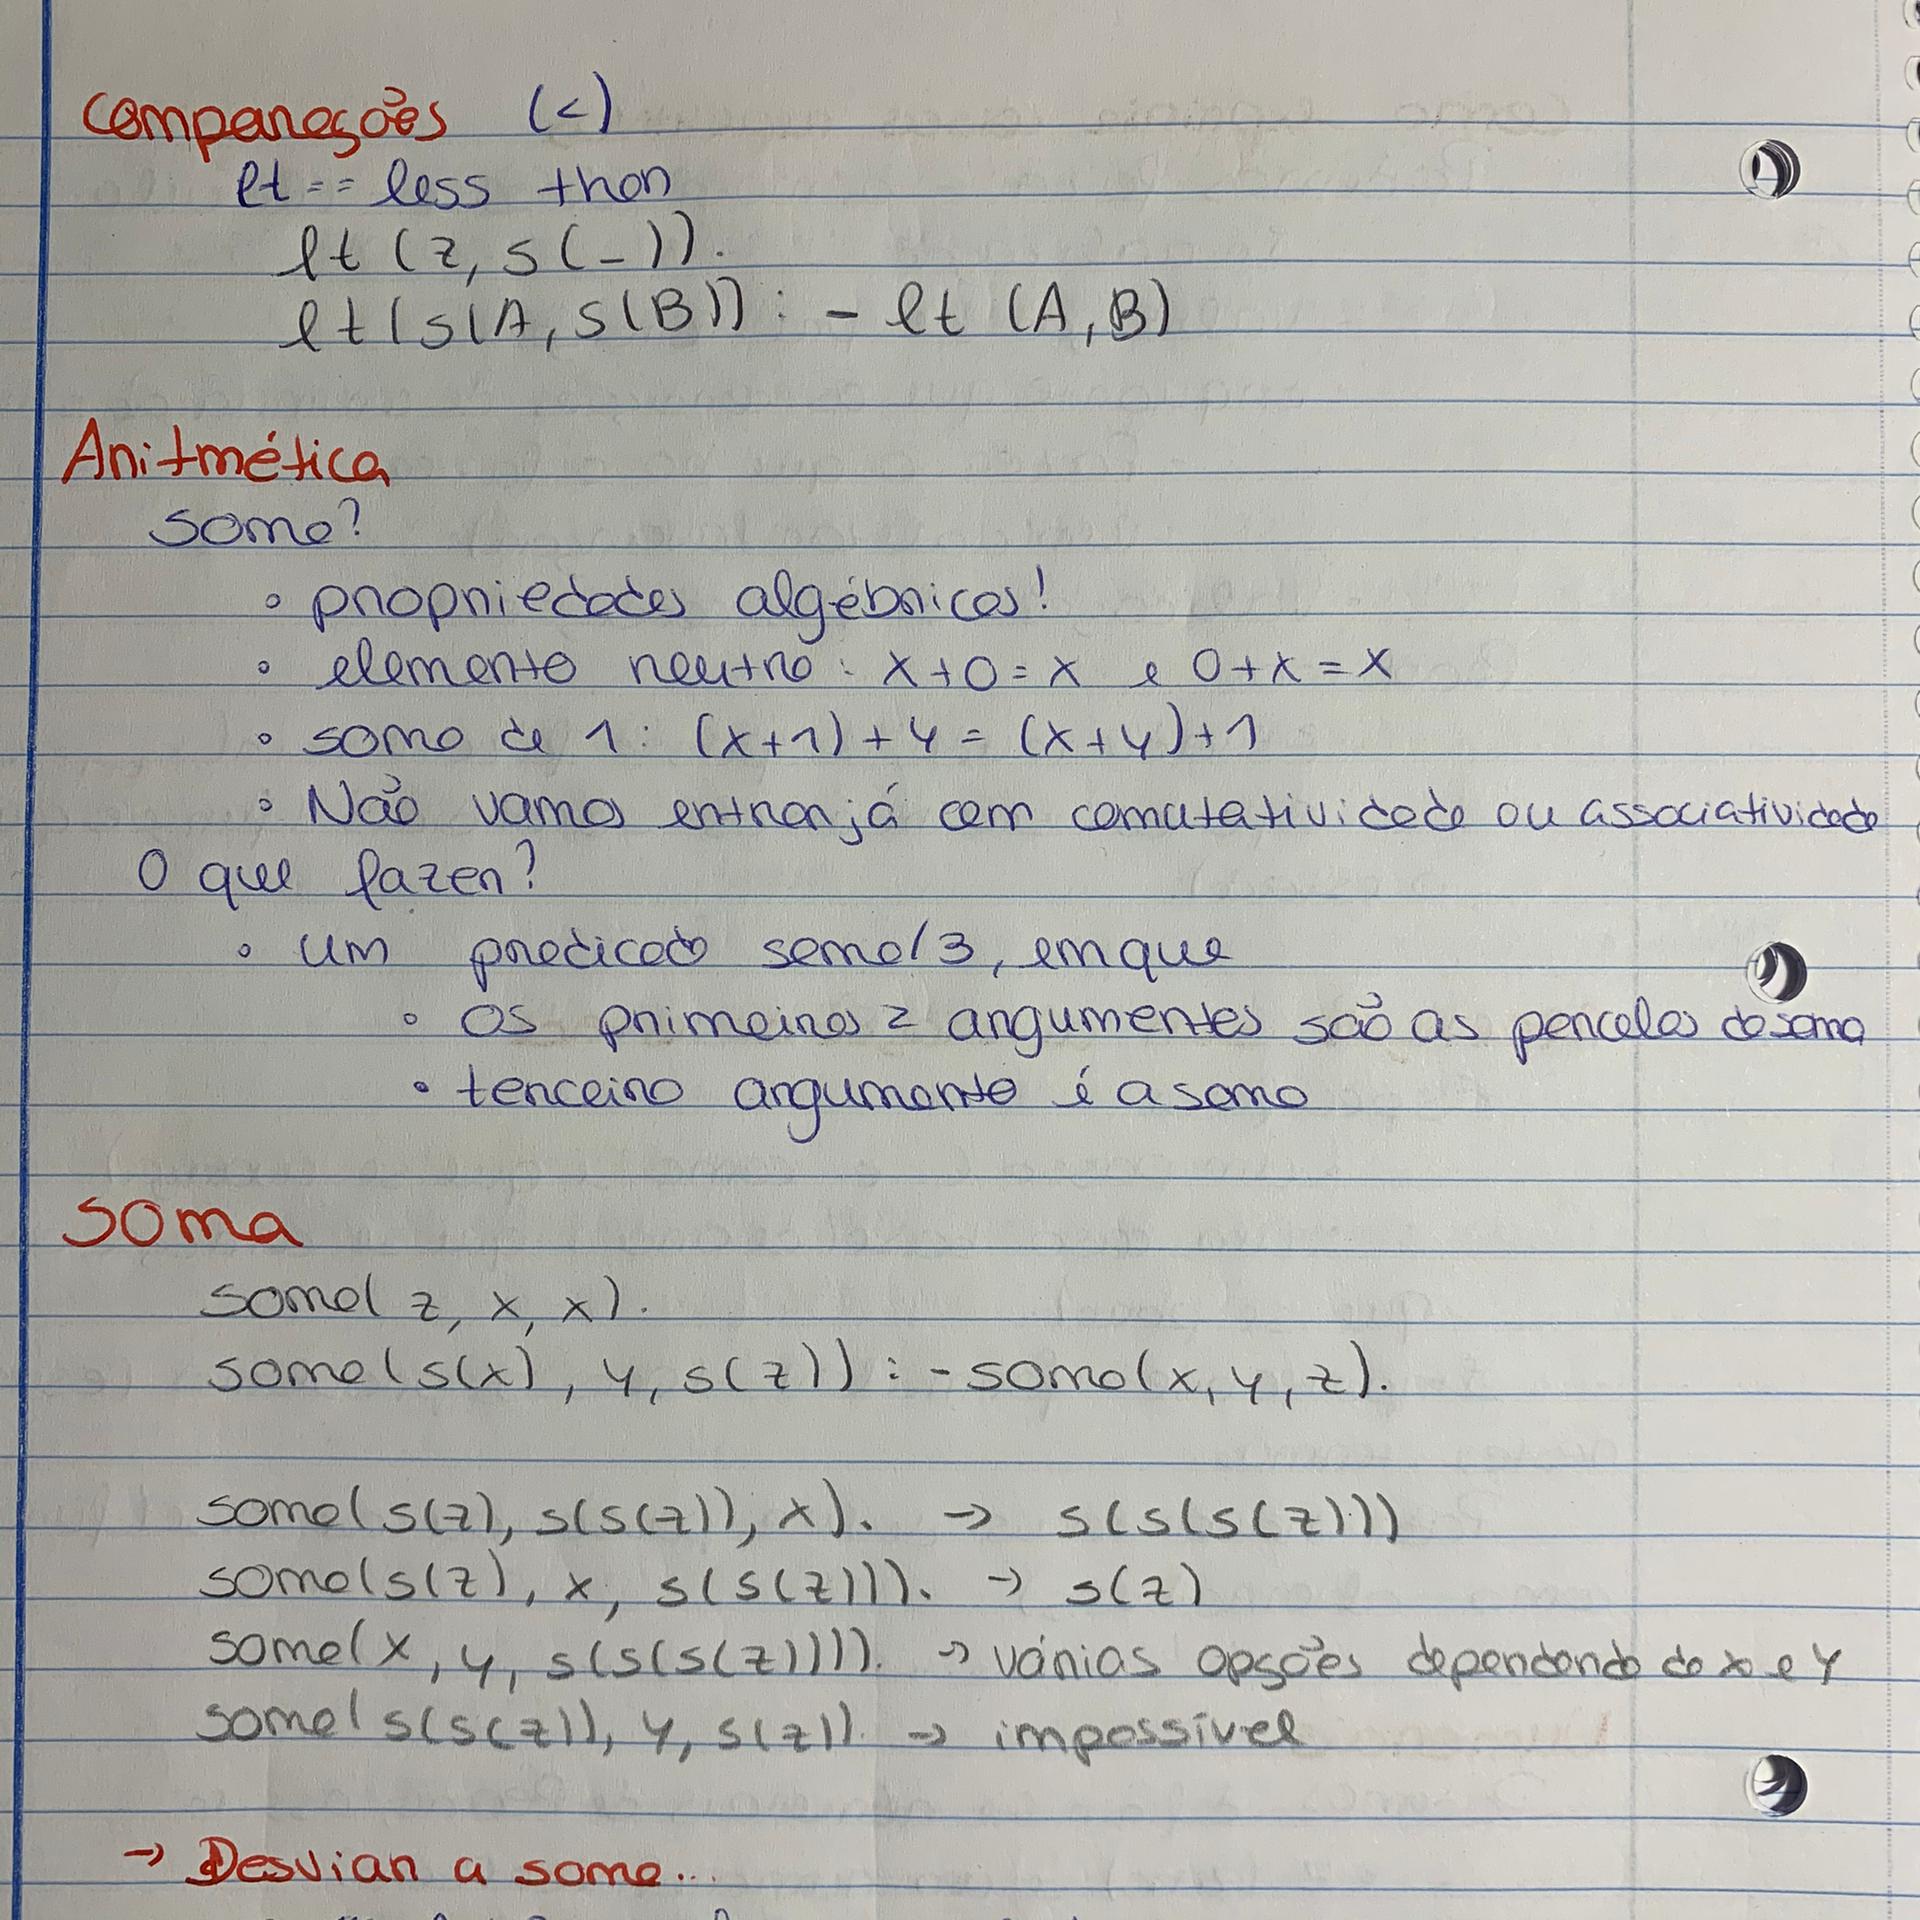 Comparações (<)
lt == less than
lt (z, s(_)).
lt(s(A, s(B)) :- lt (A,B)
Aritmética
soma?
◦ propriedades algébricas!
◦ elemento neutro : x+0=x e 0+x=x
◦ soma de 1: (x+1)+y = (x+y)+1
◦ Não vamos entrar já com comutatividade ou associatividade
O que fazer?
◦ um predicado soma/3, em que
◦ os primeiros 2 argumentos são as parcelas da soma
• terceiro argumento é a soma
Soma
soma( z, x, x).
soma(s(x), y, s(z)) :- soma(x, y, z).
soma(s(z), s(s(z)), x). → s(s(s(z)))
soma(s(z), x, s(s(z))). → s(z)
soma(x, y, s(s(s(z)))). → várias opções dependendo do x e y
soma(s(s(z)), y, s(z)). → impossível
→ Desviar a soma...